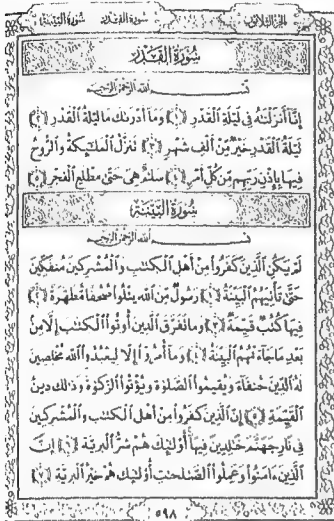 الجزء الثلاثون سورة القدر سورة البينة
سُورَةُ القَدْرِ
بِسْمِ اللَّهِ الرَّحْمَٰنِ الرَّحِيمِ
إِنَّا أَنزَلْنَٰهُ فِى لَيْلَةِ ٱلْقَدْرِ ﴿١﴾ وَمَآ أَدْرَىٰكَ مَا لَيْلَةُ ٱلْقَدْرِ ﴿٢﴾
لَيْلَةُ ٱلْقَدْرِ خَيْرٌ مِّنْ أَلْفِ شَهْرٍ ﴿٣﴾ تَنَزَّلُ ٱلْمَلَٰٓئِكَةُ وَٱلرُّوحُ
فِيهَا بِإِذْنِ رَبِّهِم مِّن كُلِّ أَمْرٍ ﴿٤﴾ سَلَٰمٌ هِىَ حَتَّىٰ مَطْلَعِ ٱلْفَجْرِ ﴿٥﴾
سُورَةُ البَيِّنَةِ
بِسْمِ اللَّهِ الرَّحْمَٰنِ الرَّحِيمِ
لَمْ يَكُنِ ٱلَّذِينَ كَفَرُوا۟ مِنْ أَهْلِ ٱلْكِتَٰبِ وَٱلْمُشْرِكِينَ مُنفَكِّينَ
حَتَّىٰ تَأْتِيَهُمُ ٱلْبَيِّنَةُ ﴿١﴾ رَسُولٌ مِّنَ ٱللَّهِ يَتْلُوا۟ صُحُفًا مُّطَهَّرَةً ﴿٢﴾
فِيهَا كُتُبٌ قَيِّمَةٌ ﴿٣﴾ وَمَا تَفَرَّقَ ٱلَّذِينَ أُوتُوا۟ ٱلْكِتَٰبَ إِلَّا مِنۢ
بَعْدِ مَا جَآءَتْهُمُ ٱلْبَيِّنَةُ ﴿٤﴾ وَمَآ أُمِرُوٓا۟ إِلَّا لِيَعْبُدُوا۟ ٱللَّهَ مُخْلِصِينَ
لَهُ ٱلدِّينَ حُنَفَآءَ وَيُقِيمُوا۟ ٱلصَّلَوٰةَ وَيُؤْتُوا۟ ٱلزَّكَوٰةَ وَذَٰلِكَ دِينُ
ٱلْقَيِّمَةِ ﴿٥﴾ إِنَّ ٱلَّذِينَ كَفَرُوا۟ مِنْ أَهْلِ ٱلْكِتَٰبِ وَٱلْمُشْرِكِينَ
فِى نَارِ جَهَنَّمَ خَٰلِدِينَ فِيهَآ أُو۟لَٰٓئِكَ هُمْ شَرُّ ٱلْبَرِيَّةِ ﴿٦﴾ إِنَّ
ٱلَّذِينَ ءَامَنُوا۟ وَعَمِلُوا۟ ٱلصَّٰلِحَٰتِ أُو۟لَٰٓئِكَ هُمْ خَيْرُ ٱلْبَرِيَّةِ ﴿٧﴾
٥٩٨